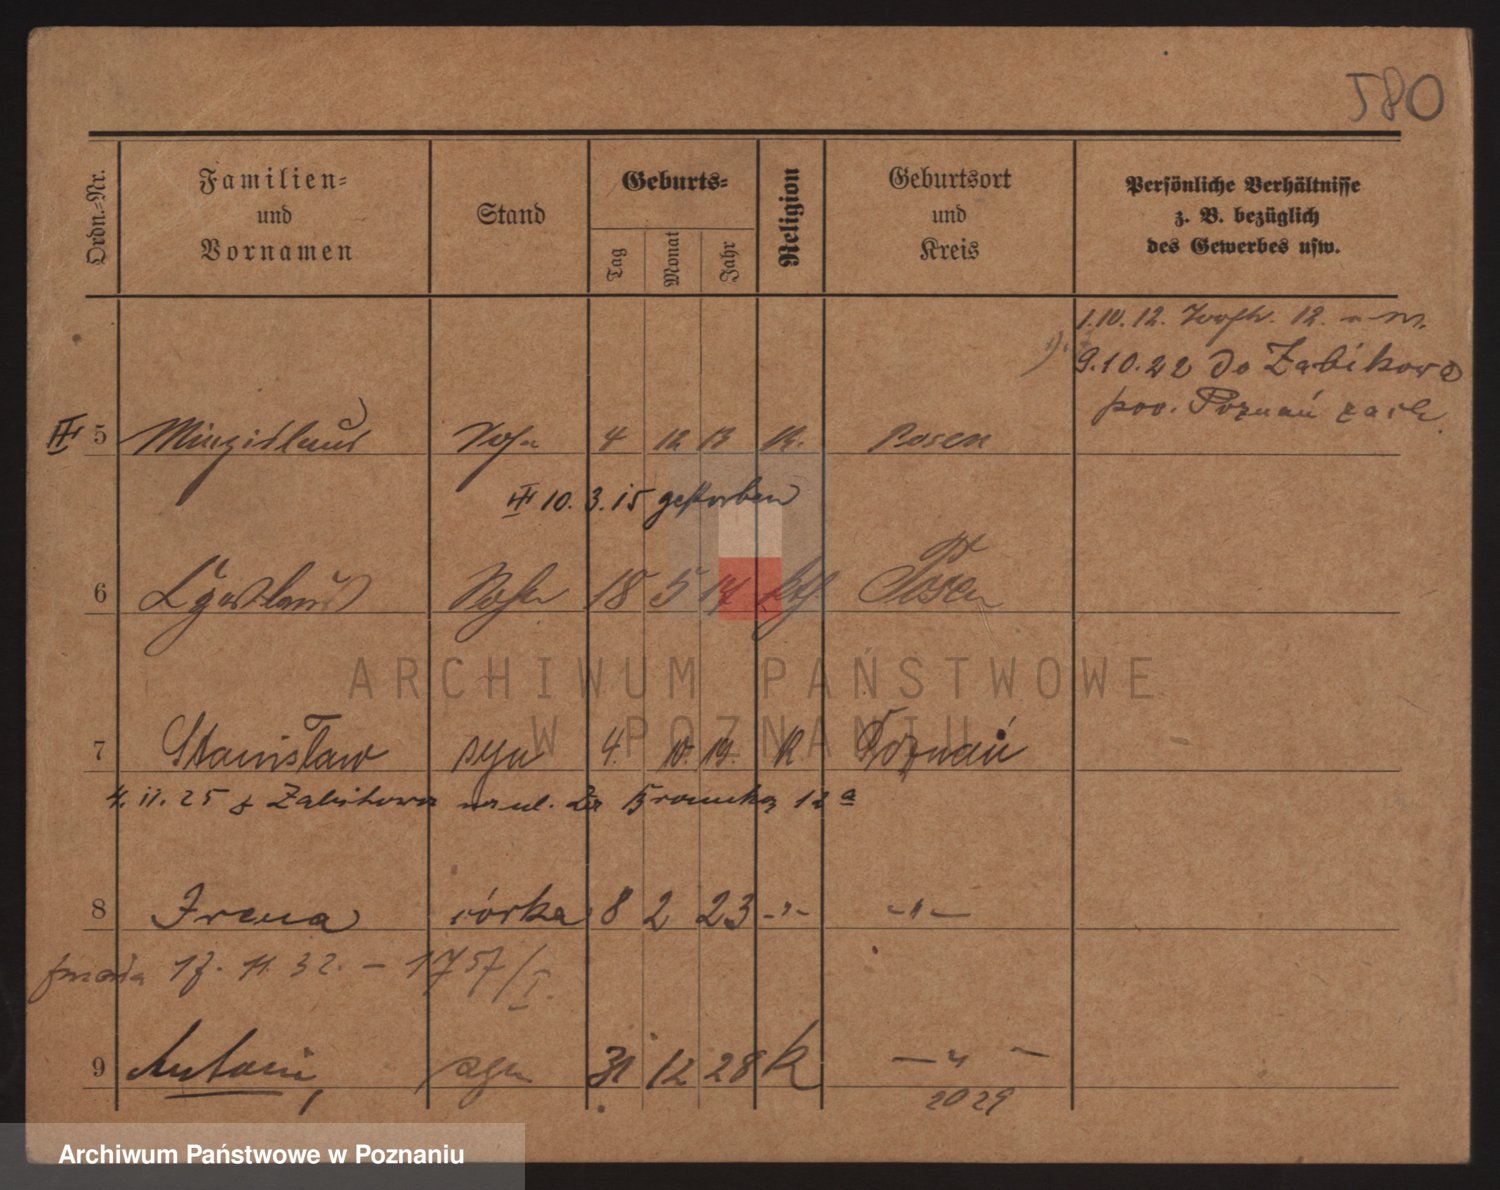 580
Ordn.-Nr.
Familien-
und
Vornamen
Stand
Geburts-
Tag
Monat
Jahr
Religion
Geburtsort
und
Kreis
Persönliche Verhältnisse
z. B. bezüglich
des Gewerbes usw.
1.10.12. 12.
9.10.22 do Żabikowa
pow. Poznań zach.
III 5 Sohn 4 12 13 K. Posen
III 10.3.15 gestorben
6 Sohn 18 5 17 kth. Posen
ARCHIWUM PAŃSTWOWE
W POZNANIU
7 Stanisław syn 4. 10. 19. K Poznań
4.11.25 z Żabikowa na ul. 12 a
8 Irena córka 8 2 23 -"- -"-
17.11.32. - 1757/I.
9 Antoni, syn 31 12 28 k —"—
2029
Archiwum Państwowe w Poznaniu